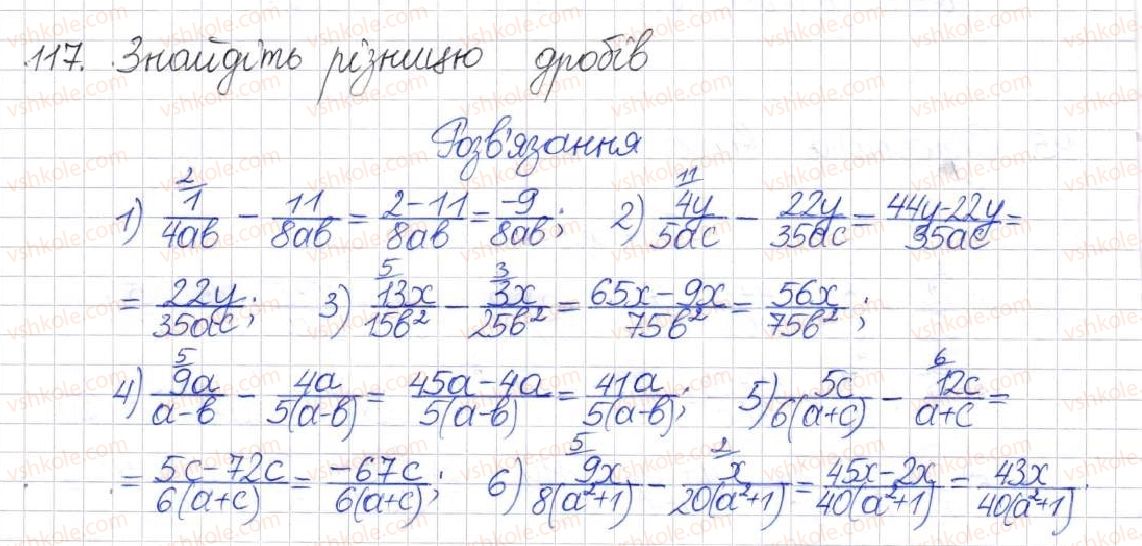 117. Знайдіть різницю дробів
Розв'язання
1) 1/4ab (2) − 11/8ab = 2−11/8ab = −9/8ab; 2) 4y/5ac (11) − 22y/35ac = 44y−22y/35ac =
= 22y/35ac; 3) 13x/15b² (5) − 3x/25b² (3) = 65x−9x/75b² = 56x/75b²;
4) 9a/a−b (5) − 4a/5(a−b) = 45a−4a/5(a−b) = 41a/5(a−b); 5) 5c/6(a+c) − 12c/a+c (6) =
= 5c−72c/6(a+c) = −67c/6(a+c); 6) 9x/8(a²+1) (5) − x/20(a²+1) (2) = 45x−2x/40(a²+1) = 43x/40(a²+1).